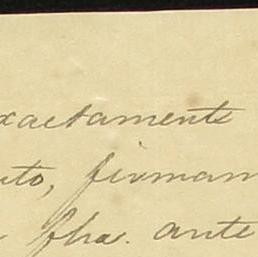 xactamente
uto, firman
fha. ante